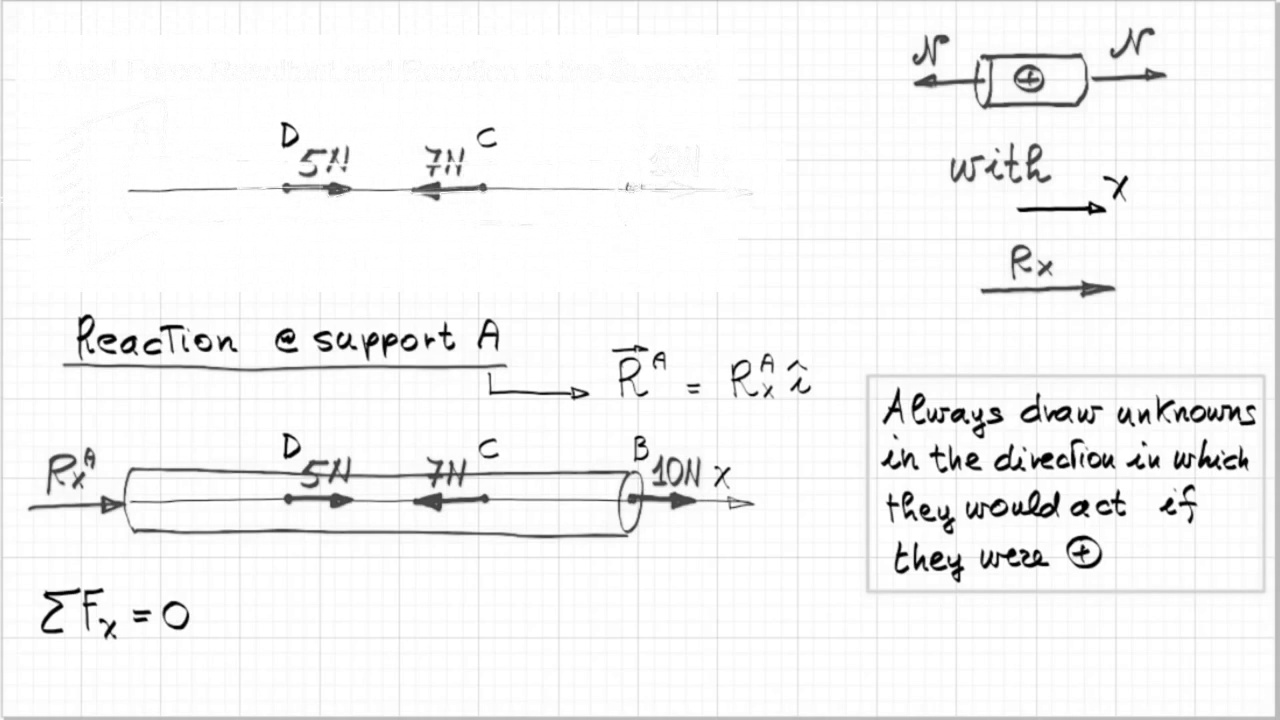 Axial Force Resultant and Reaction at the Support
D 5N 7N C 10N x
N N
with
x
Rx
Reaction @ support A
R^A = Rx^A î
Rx^A D 5N 7N C B 10N x
ΣFx = 0
Always draw unknowns
in the direction in which
they would act if
they were ⊕